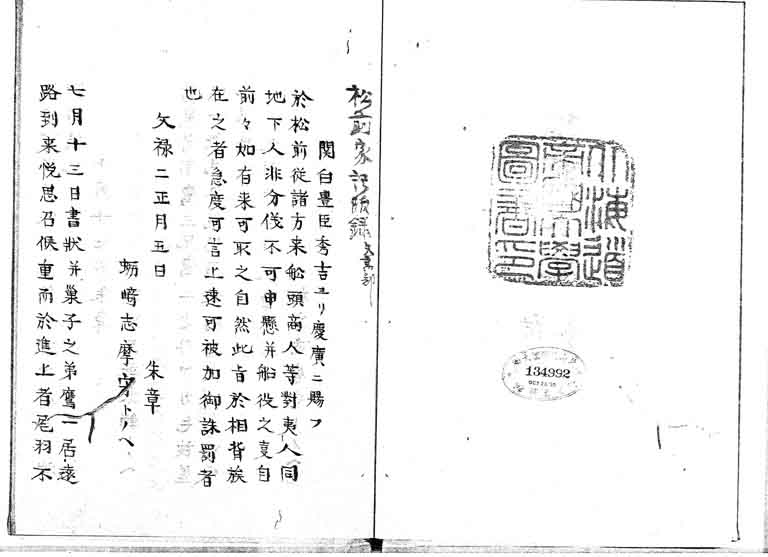 北海道
帝國大學
圖書印
134992
松前家記附録 文書部
関白豊臣秀吉ヨリ慶廣ニ賜フ
於松前従諸方来船頭商人等對夷人同
地下人非分伐不可申懸并船役之叓自
前々如有来可取之自然此旨於相背族
在之者急度可言上速可被加御誅罰者
也
文禄二正月五日
朱章
蛎﨑志摩守トノヘ
七月十三日書状并巣子之弟鷹一居遠
路到来悦思召候重而於進上者尾羽不